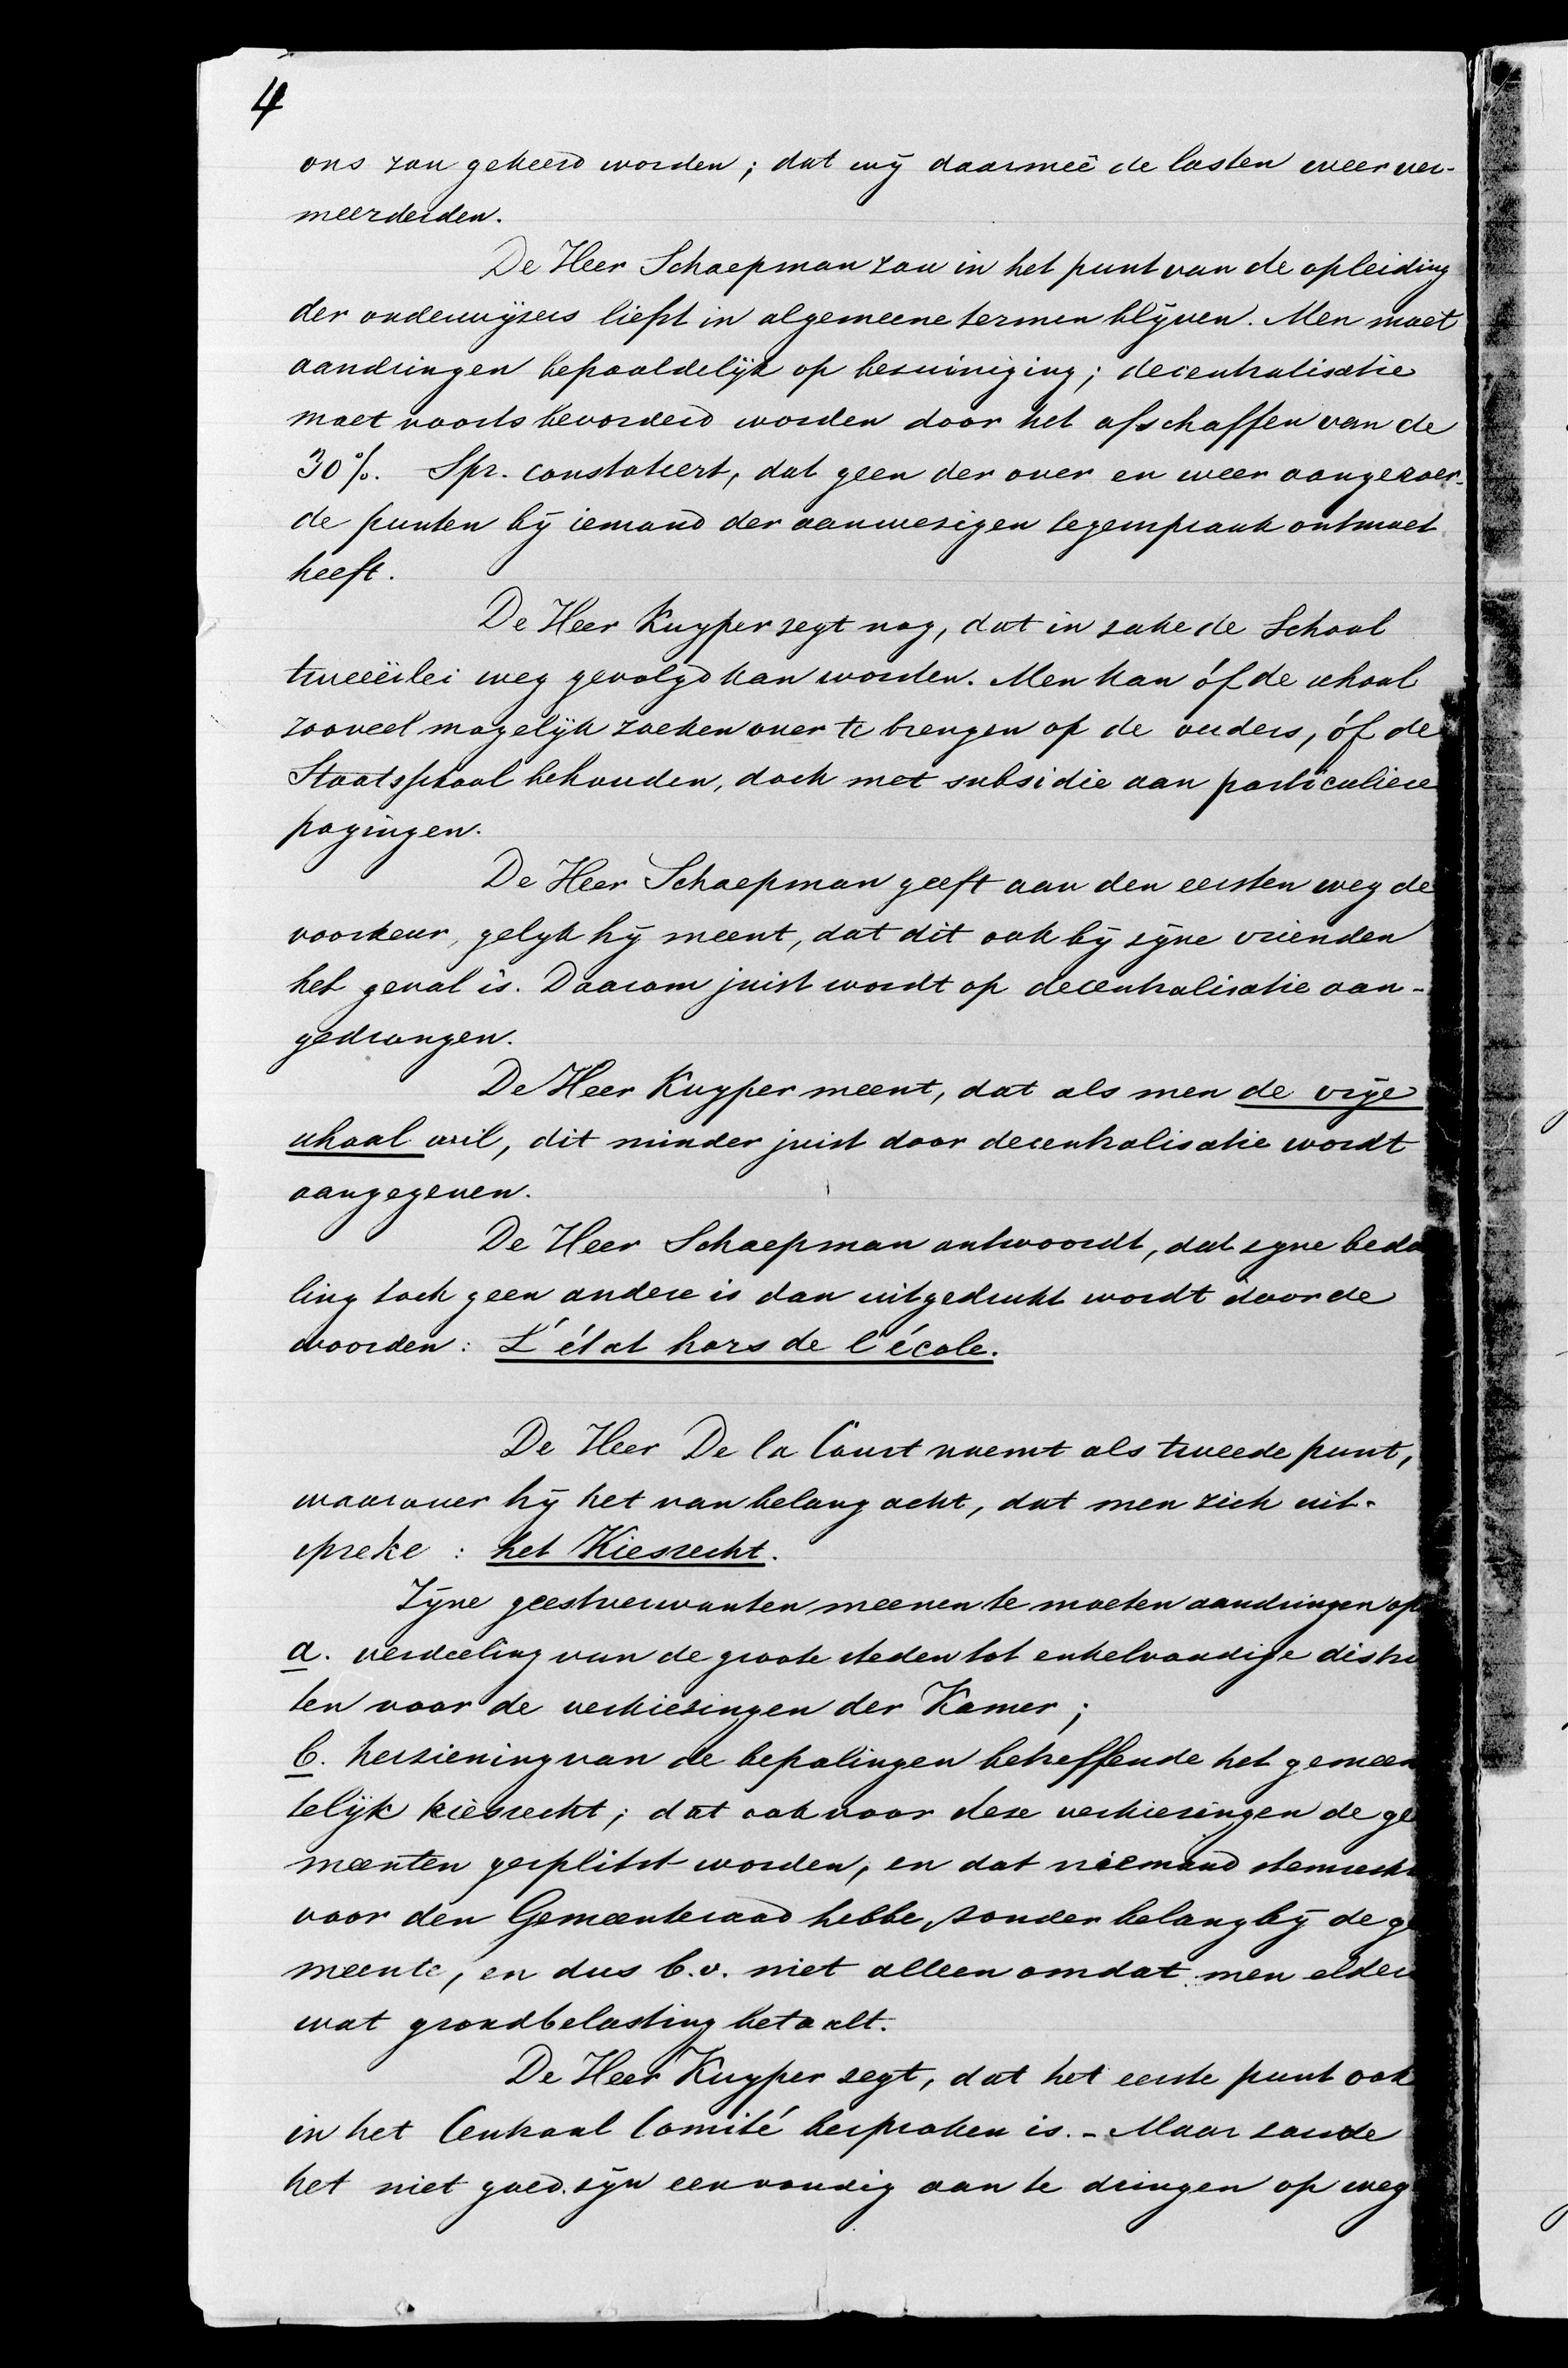 4
ons zou gekeerd worden; dat wij daarmeê de lasten weer ver-
meerderden.
De Heer Schaepman zou in het punt van de opleiding
der onderwijzers liefst in algemeene termen blijven. Men moet
aandringen bepaaldelijk op bezuiniging; decentralisatie
moet voorts bevorderd worden door het afschaffen van de
30%. Spr. constateert, dat geen der over en weer aangeroer-
de punten bij iemand der aanwezigen tegenspraak ontmoet
heeft.
De Heer Kuyper zegt nog, dat in zake de School
tweeërlei weg gevolgd kan worden. Men kan óf de school
zooveel mogelijk zoeken over te brengen op de ouders, óf de
Staatsschool behouden, doch met subsidie aan particuliere
pogingen.
De Heer Schaepman geeft aan den eersten weg de
voorkeur, gelijk hij meent, dat dit ook bij zijne vrienden
het geval is. Daarom juist wordt op decentralisatie aan-
gedrongen.
De Heer Kuyper meent, dat als men de vrije
school wil, dit minder juist door decentralisatie wordt
aangegeven.
De Heer Schaepman antwoordt, dat zijne bedoe
ling toch geen andere is dan uitgedrukt wordt door de
woorden: L'état hors de l'école.
De Heer De la Court noemt als tweede punt,
waarover hij het van belang acht, dat men zich uit-
spreke: het Kiesrecht.
Zijne geestverwanten meenen te moeten aandringen op
a. verdeeling van de groote steden tot enkelvoudige distri
ten voor de verkiezingen der Kamer;
b. herziening van de bepalingen betreffende het gemeen
telijk kiesrecht; dat ook voor deze verkiezingen de ge
meenten gesplitst worden, en dat niemand stemrecht
voor den Gemeenteraad hebbe, zonder belang bij de ge
meente, en dus b.v. niet alleen omdat men elders
wat grondbelasting betaalt.
De Heer Kuyper zegt, dat het eerste punt ook
in het Centraal Comité besproken is. - Maar zoude
het niet goed zijn eenvoudig aan te dringen op weg